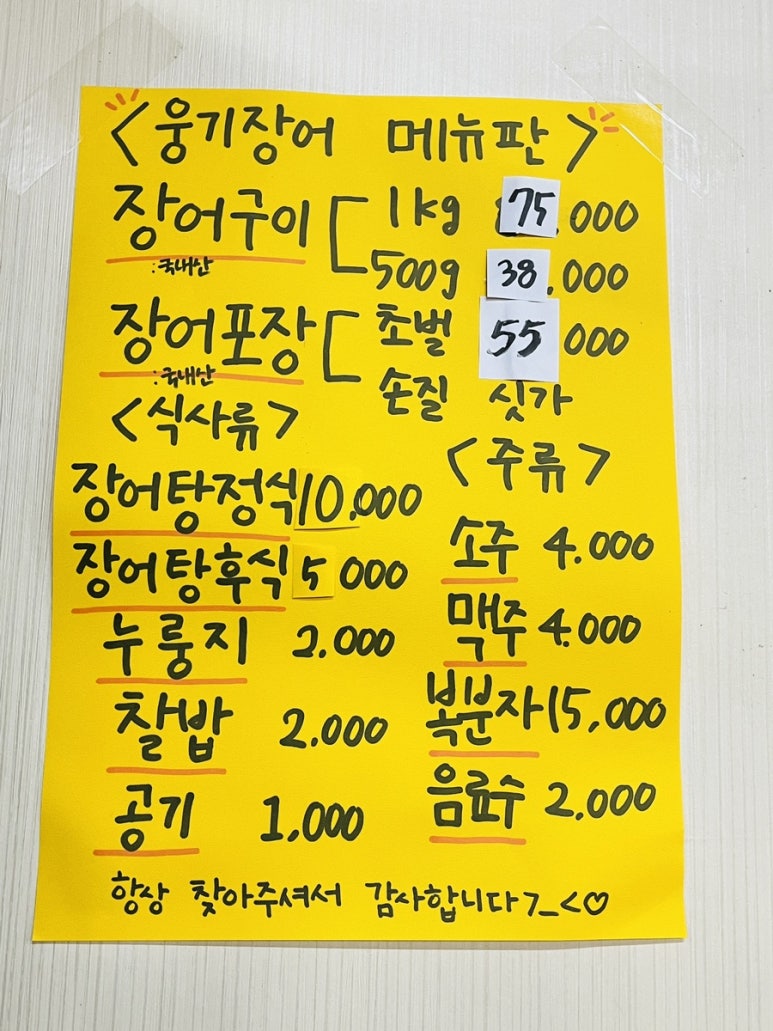 <웅기장어 메뉴판>
장어구이 1kg 75.000
:국내산 500g 38.000
장어포장 초벌 55 000
:국내산 손질 싯가
<식사류>
장어탕정식 10.000
장어탕후식 5 000
누룽지 2.000
찰밥 2.000
공기 1,000
<주류>
소주 4.000
맥주 4.000
복분자 15,000
음료수 2.000
항상 찾아주셔서 감사합니다 7_<♡